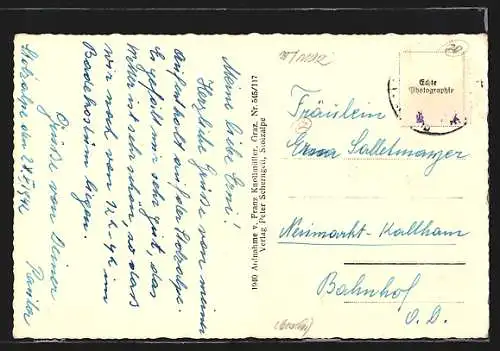 Meine liebe Erni!
Herzliche Grüße von meinem
Aufenthalt auf der Stolzalpe.
Es gefällt mir sehr gut, das
Wetter ist sehr schön, so daß
wir nach von 12h-4h im
Badekostüm liegen.
Grüße von Deiner
Stolzalpe am
1940 Aufnahme v. Franz Knollmüller, Graz. Nr. 545/117
Verlag Peter Schernigell, Stolzalpe
Echte
Photographie
Fräulein
Erna Salletmayer
Neumarkt-Kallham
Bahnhof
O. D.